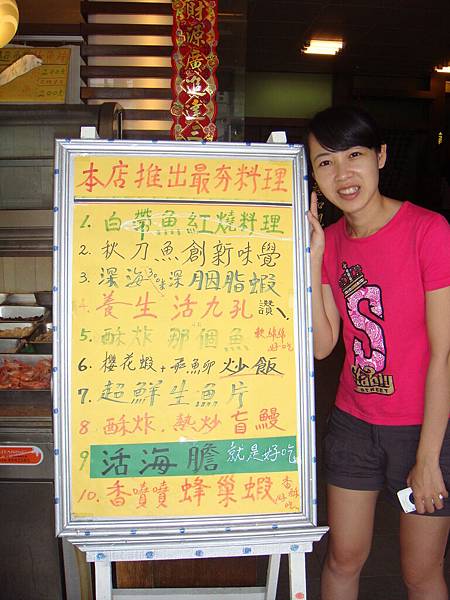 財源廣進達三
200元
200元
本店推出最夯料理
1. 白帶魚紅燒料理
2. 秋刀魚創新味覺
3. 深海300米深胭脂蝦
4. 養生活九孔 讚
5. 酥炸那個魚 軟綿綿好吃
6. 櫻花蝦+飛魚卵炒飯
7. 超鮮生魚片
8. 酥炸.熱炒盲鰻
9 活海膽 就是好吃
10. 香噴噴蜂巢蝦 香酥好吃
S